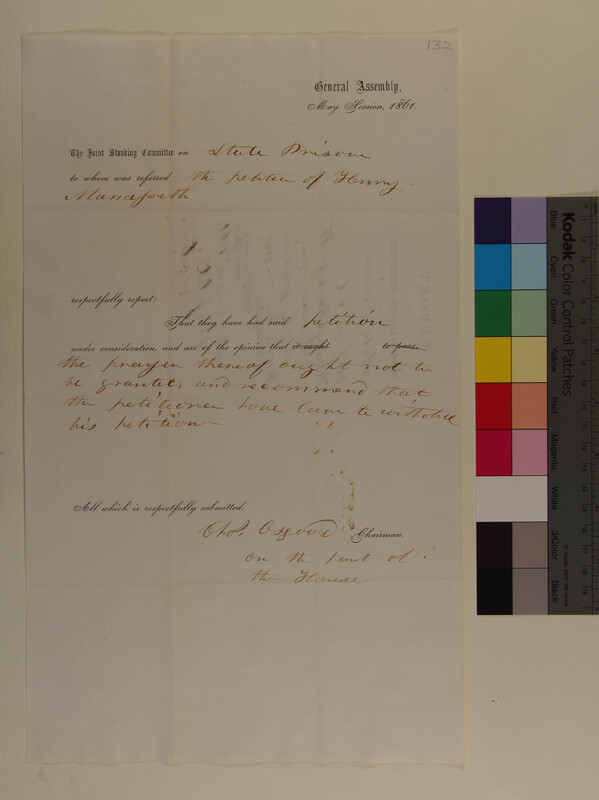 132
General Assembly,
May Session, 1861.
The Joint Standing Committee on State Prison
to whom was referred the petition of Henry
Manasseth
respectfully report:
That they have had said petition
under consideration, and are of the opinion that it ought to pass
the prayer thereof ought not to
be granted, and recommend that
the petitioner have leave to withdraw
his petition
All which is respectfully submitted.
Chas. Osgood Chairman.
on the part of
the House
Kodak Color Control Patches
Blue
Cyan
Green
Yellow
Red
Magenta
White
3/Color
Black